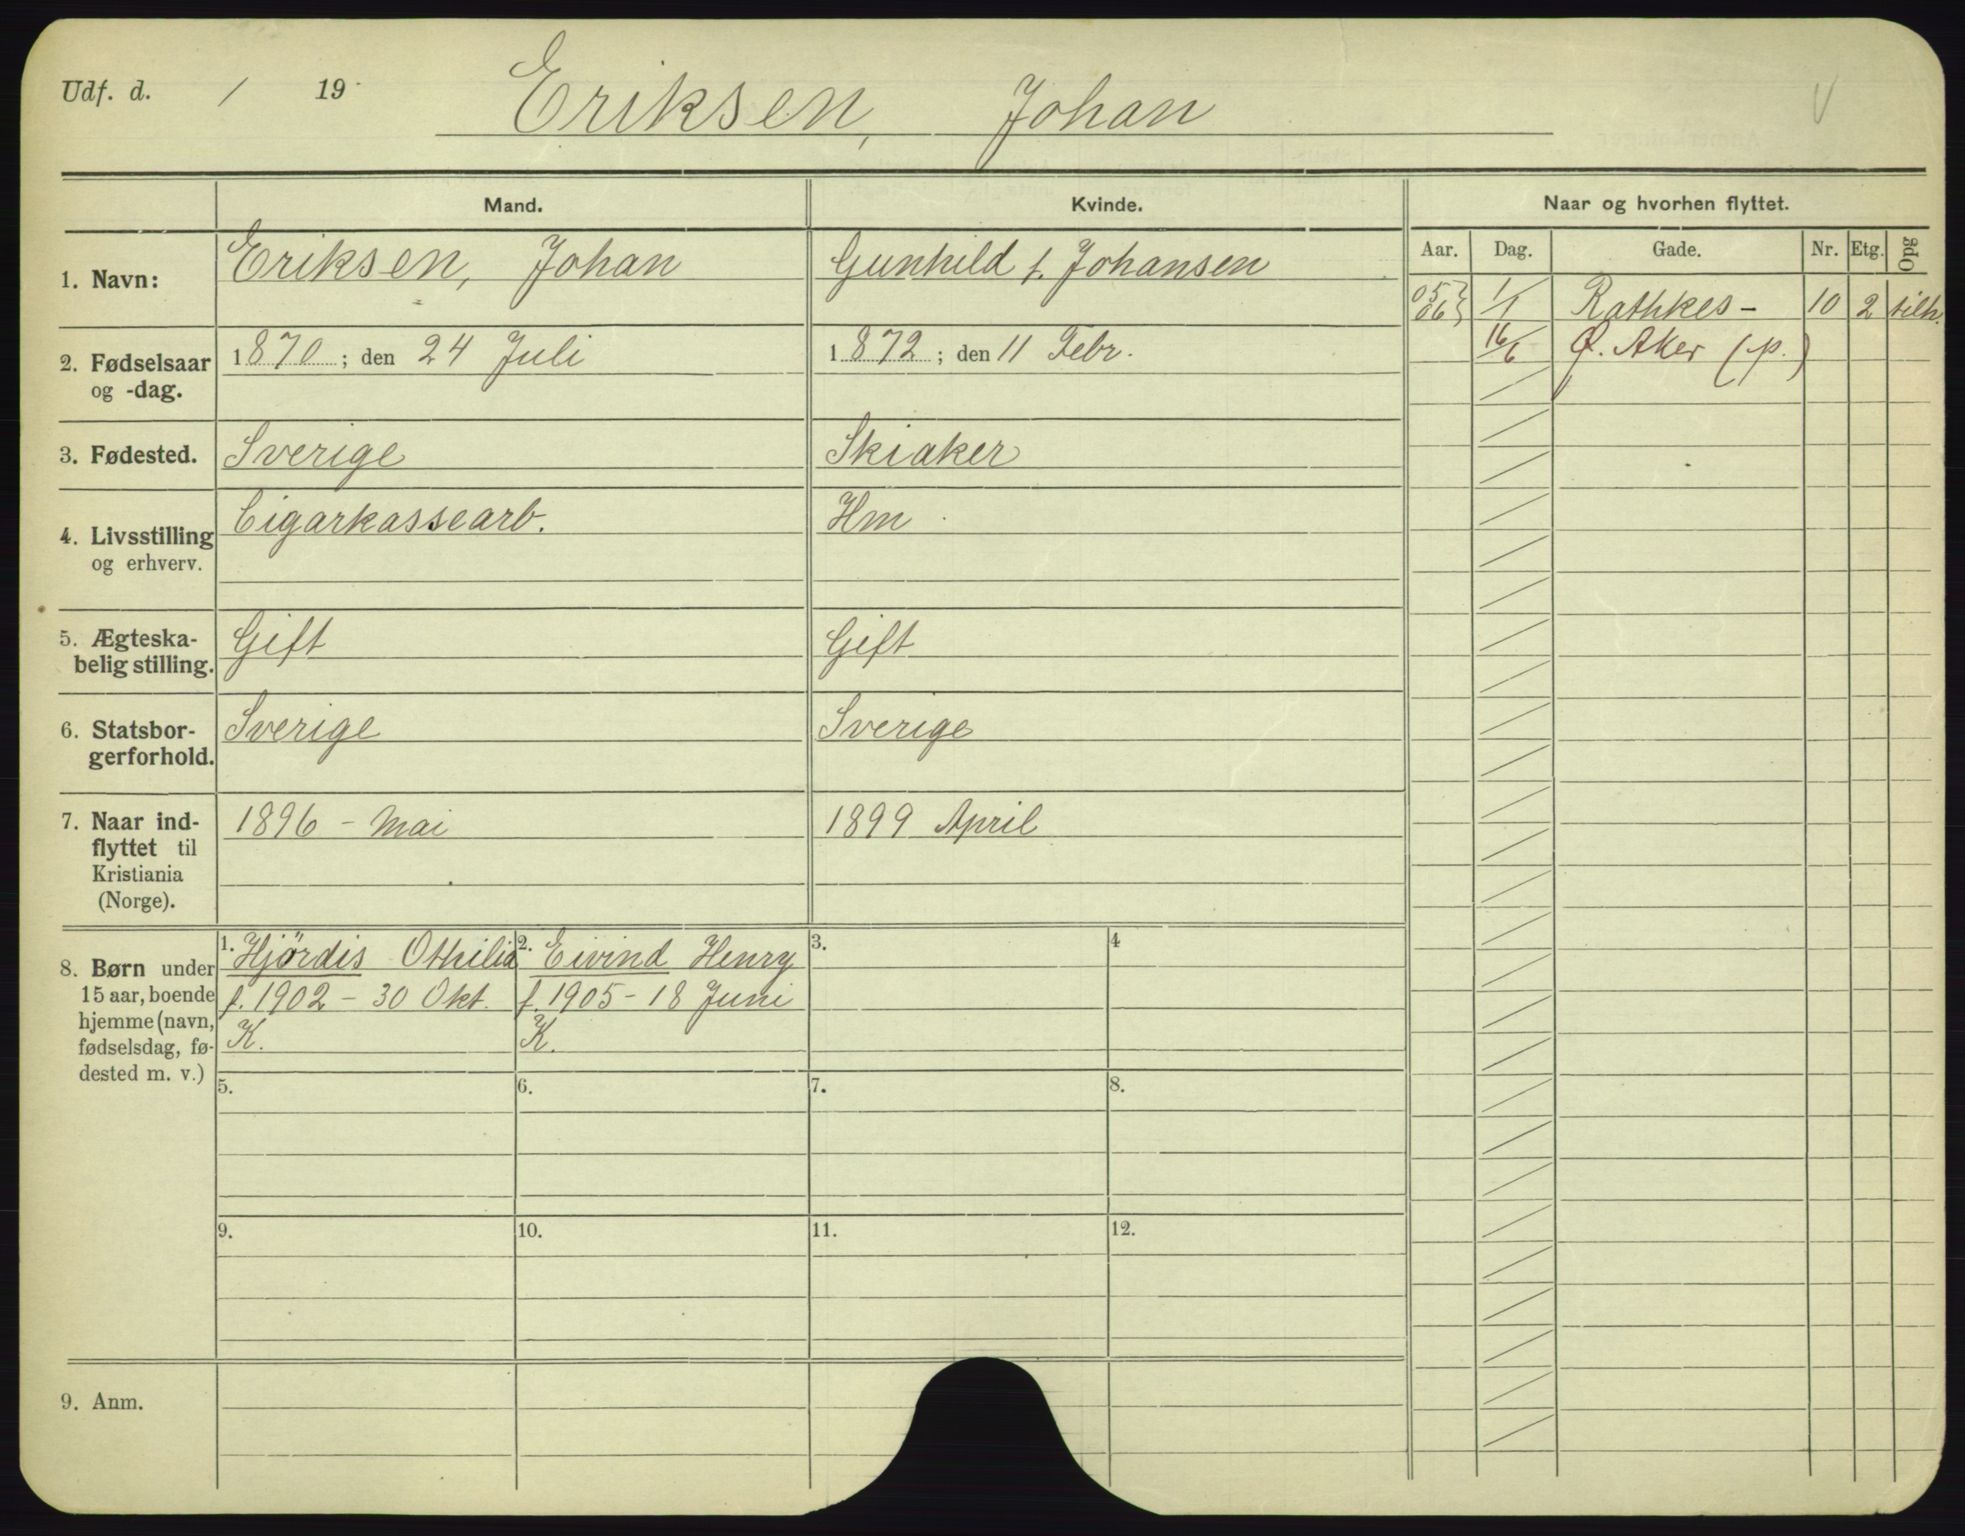 Udf. d. / 19
Eriksen, Johan
V
Mand. Kvinde. Naar og hvorhen flyttet.
Aar. Dag. Gade. Nr. Etg. Opg
1. Navn: Eriksen, Johan Gunhild f. Johansen
05 } 1/1 Rathkes- 10 2 tilh.
06 }
16/6 Ø. Aker (p.)
2. Fødselsaar 1870; den 24 Juli 1872; den 11 Febr.
og -dag.
3. Fødested. Sverige Skiaker
4. Livsstilling Cigarkassearb. Hm
og erhverv.
5. Ægteska- Gift Gift
belig stilling.
6. Statsbor- Sverige Sverige
gerforhold.
7. Naar ind- 1896 - Mai 1899 April
flyttet til
Kristiania
(Norge).
8. Børn under 1. Hjørdis Othilia 2. Eivind Henry 3. 4
15 aar, boende f. 1902 - 30 Okt. f. 1905 - 18 Juni
hjemme (navn, K. K.
fødselsdag, fø-
dested m. v.)
5. 6. 7. 8.
9. 10. 11. 12.
9. Anm.